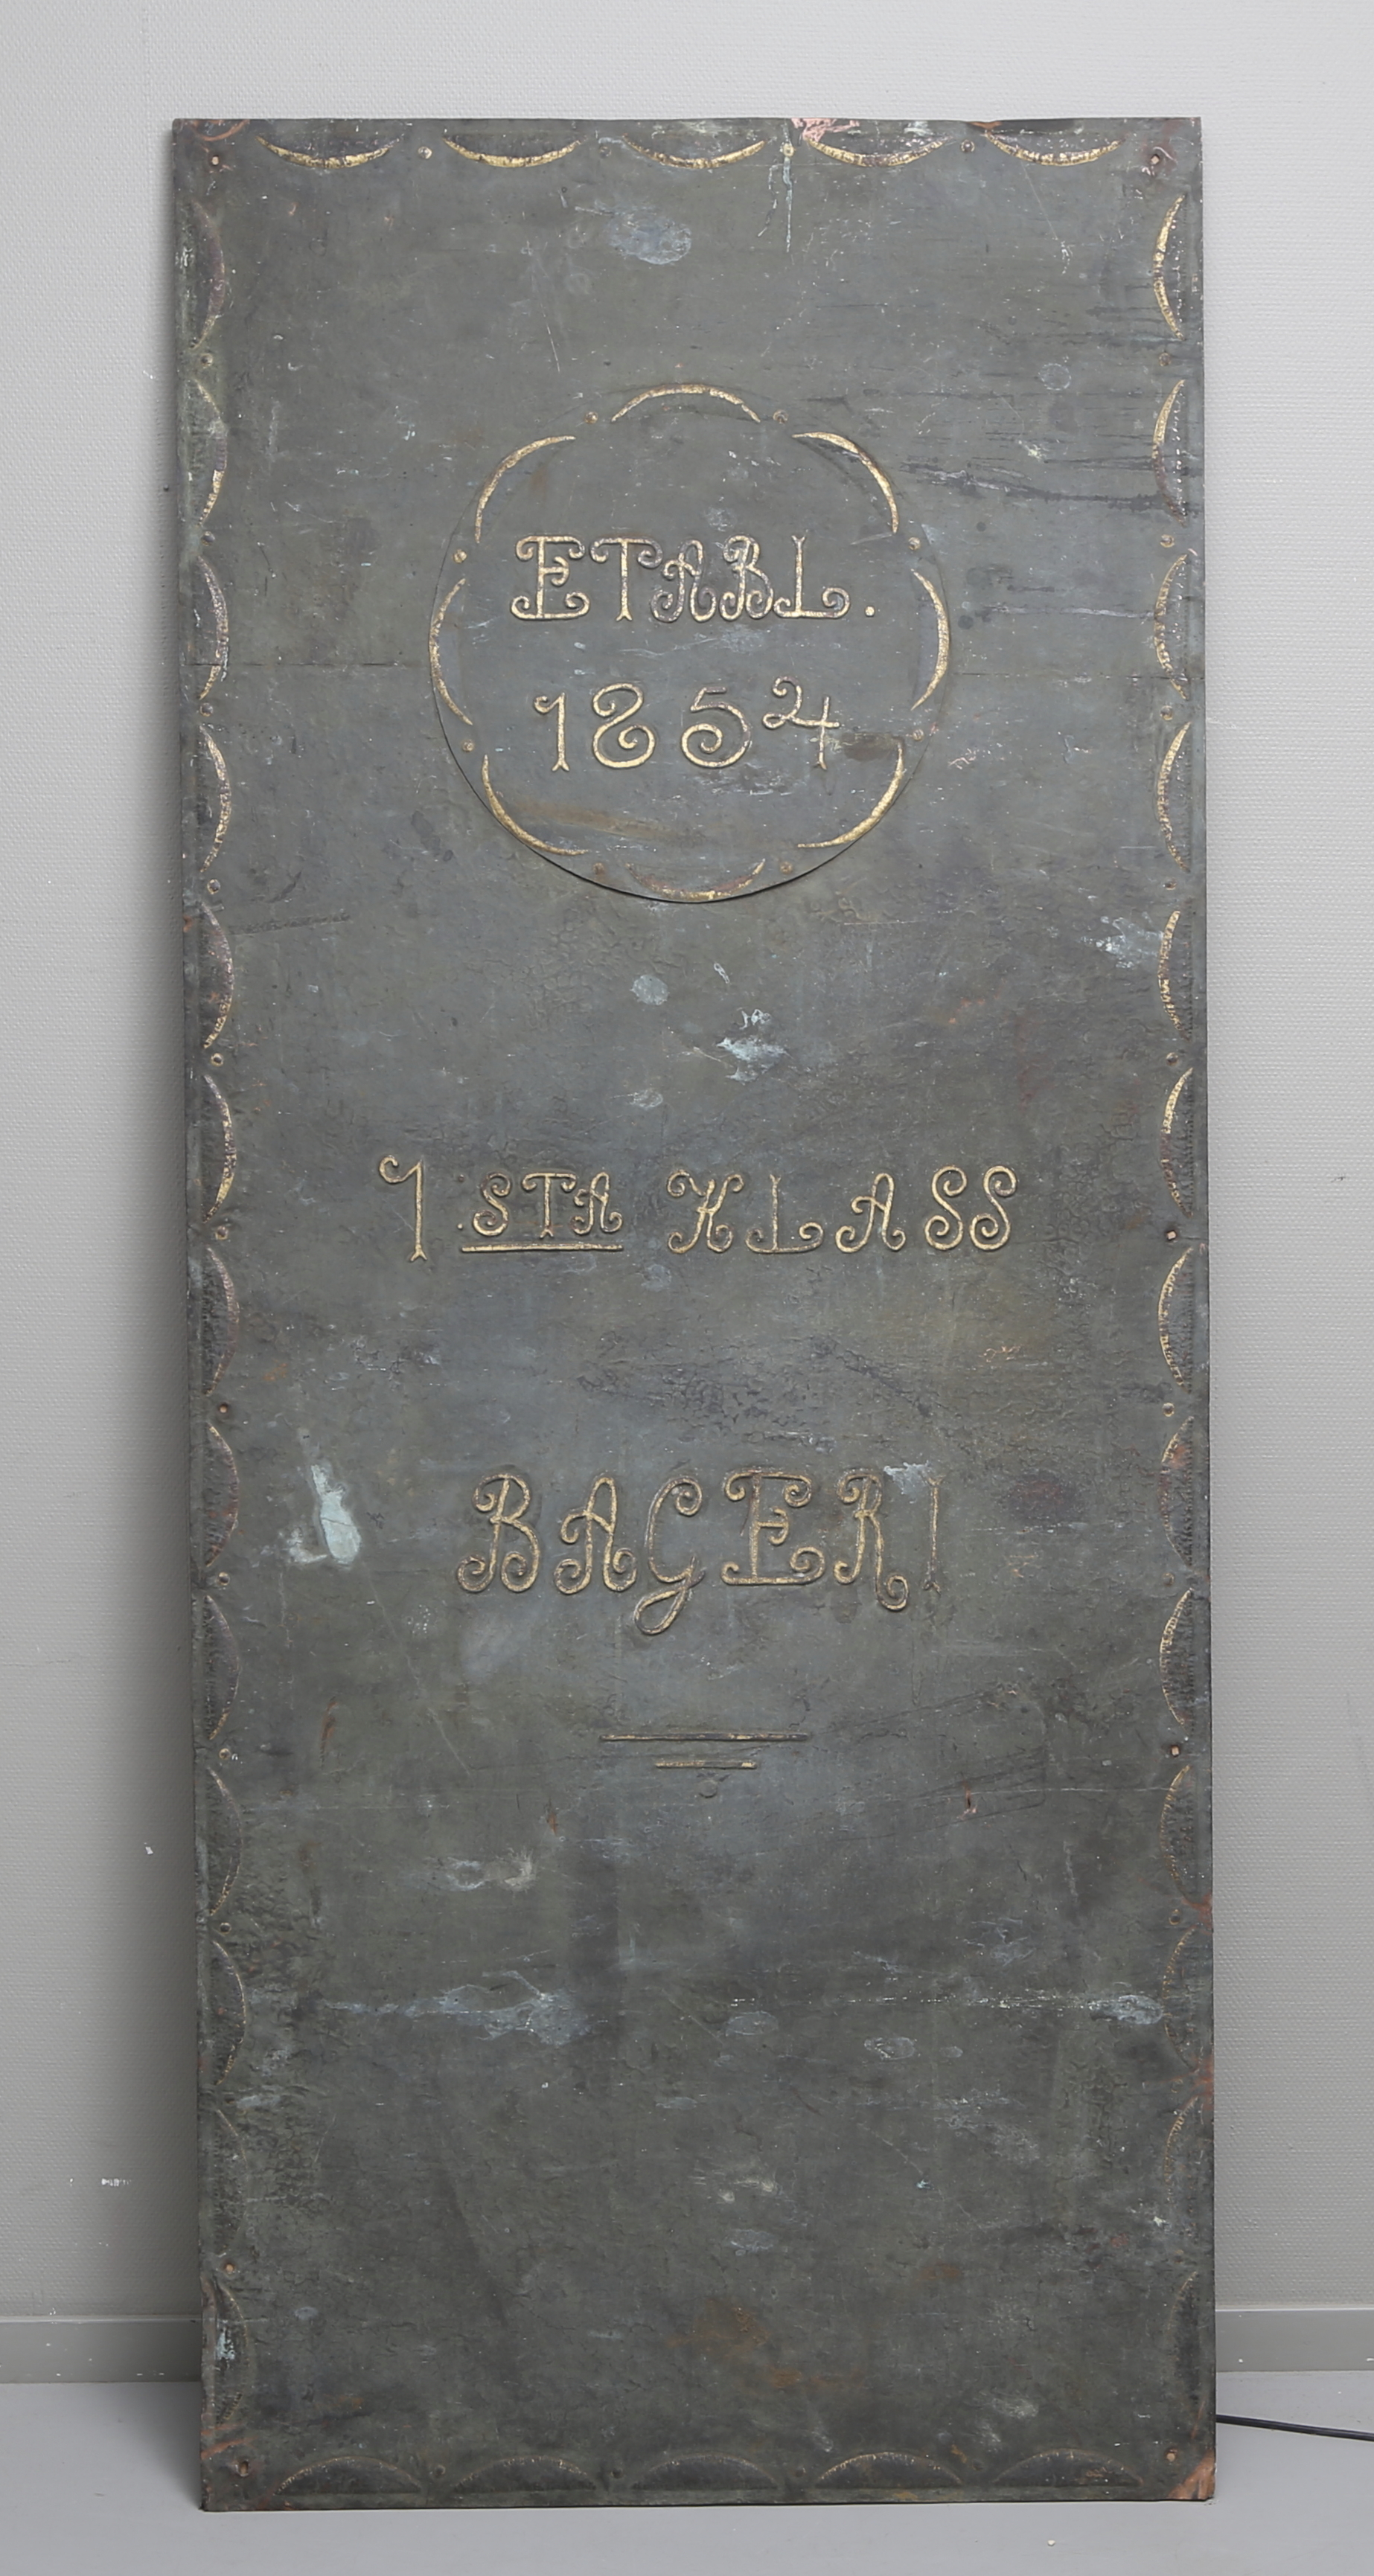 ETABL.
1854
1:STA KLASS
BAGERI